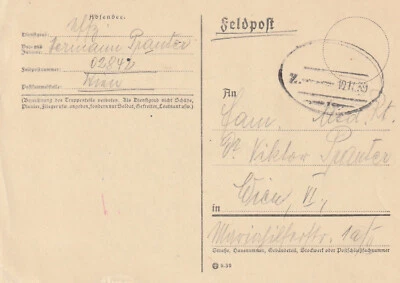 Absender:
Dienstgrad: Uffz
Vor- und Zuname: Hermann Pranter
Feldpostnummer: 02842
Postsammelstelle: Wien
(Bezeichnung des Truppenteils verboten. Als Dienstgrad nicht Schütze,
Pionier, Flieger usw. angeben, sondern nur Soldat, Gefreiter, Leutnant usw.)
Feldpost
Z.
An
Fam. Med. Rt.
Dr Viktor Pranter
Wien, VI,
in
Mariahilferstr. 1a/
Straße, Hausnummer, Gebäudeteil, Stockwerk oder Postschließfachnummer